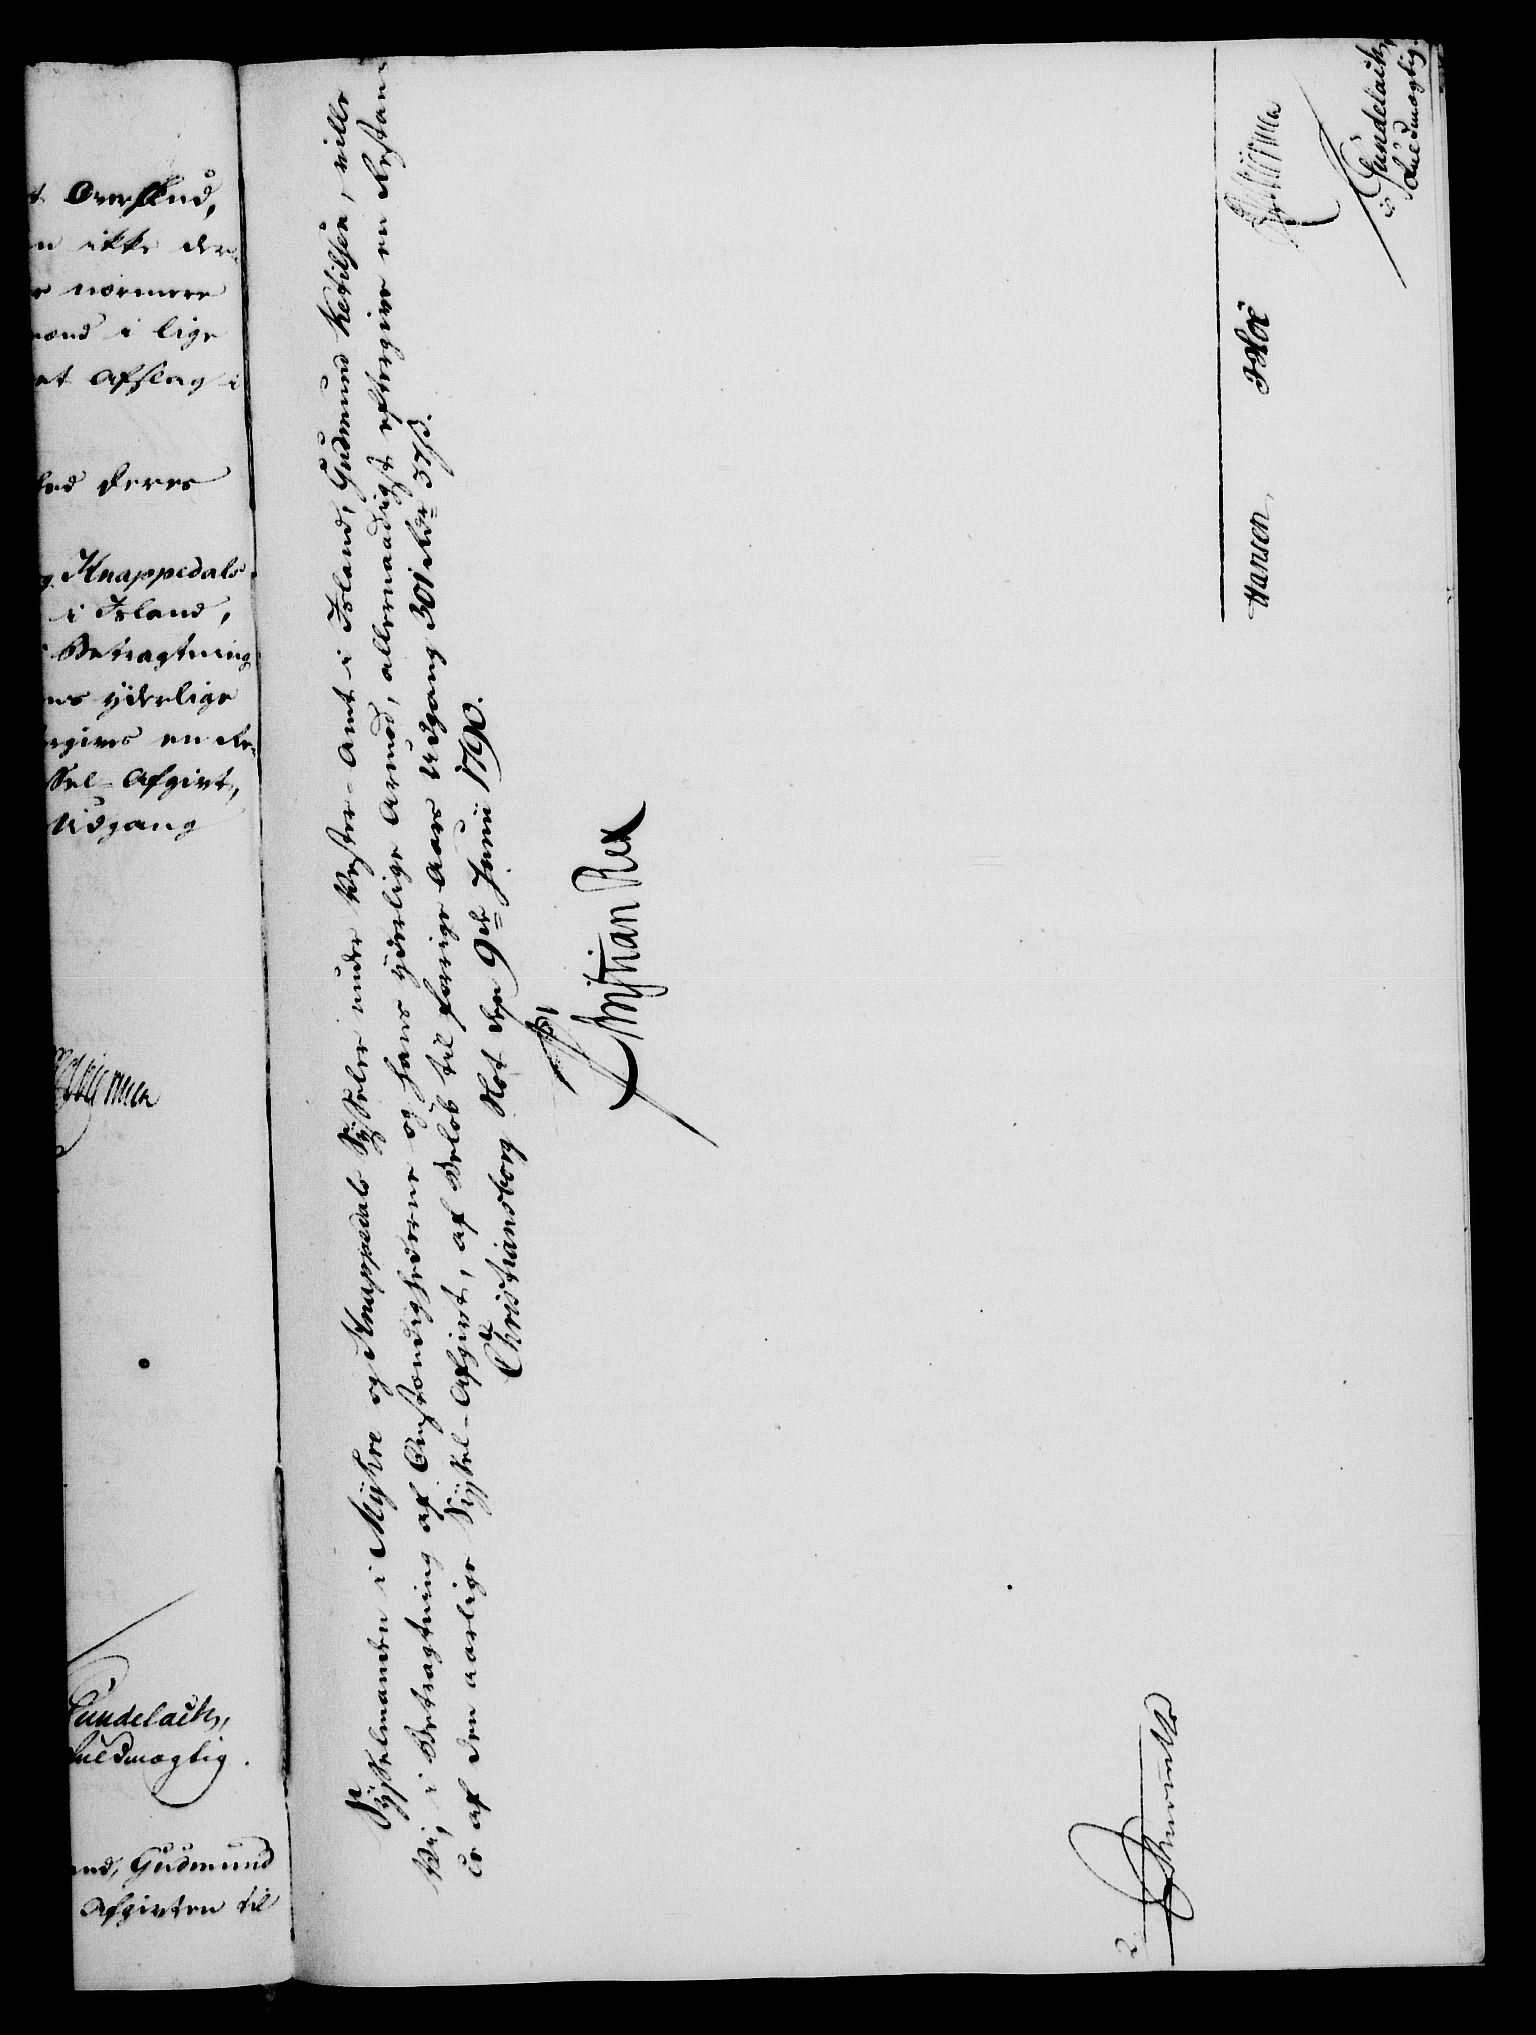 t Overskud,
n ikke der-
e nærmere
mænd i lige
et Afslag i
ved deres
g Knappedals
i Island,
Betragtning
ns yderlige
rgives en Re-
ssel-Afgivt,
Udgang
Gundelach,
Fuldmægtig.
nd, Gudmund
Afgivten til
Sysselmanden i Myhre og Knappedals Sysseler under Vester-Amt i Island, Gudmund Ketilsen, ville
Vi, i Betragtning af Omstændighederne og hans yderlige Armod, allernaadigst eftergive en Restan-
ce af den aarlige Syssel-Afgivt, af Beløb til forrige Aars Udgang 301 Rdr 37 ß.
Christiansborg Slot den 9de Junii 1790.
Christian Rex
Hansen
Hoë
Gundelach,
Fuldmægtig.
2.